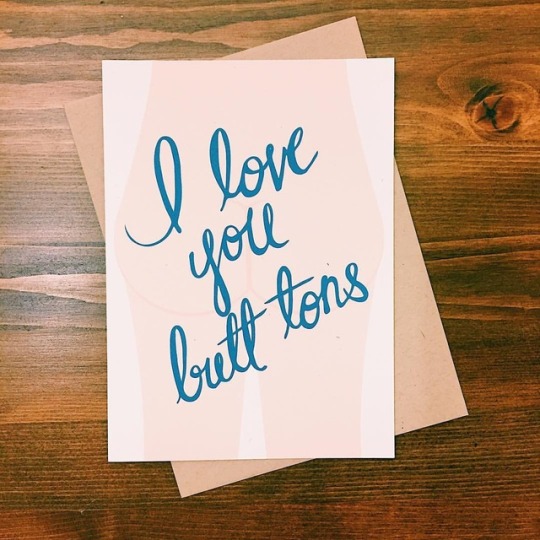 I love
you
butt tons